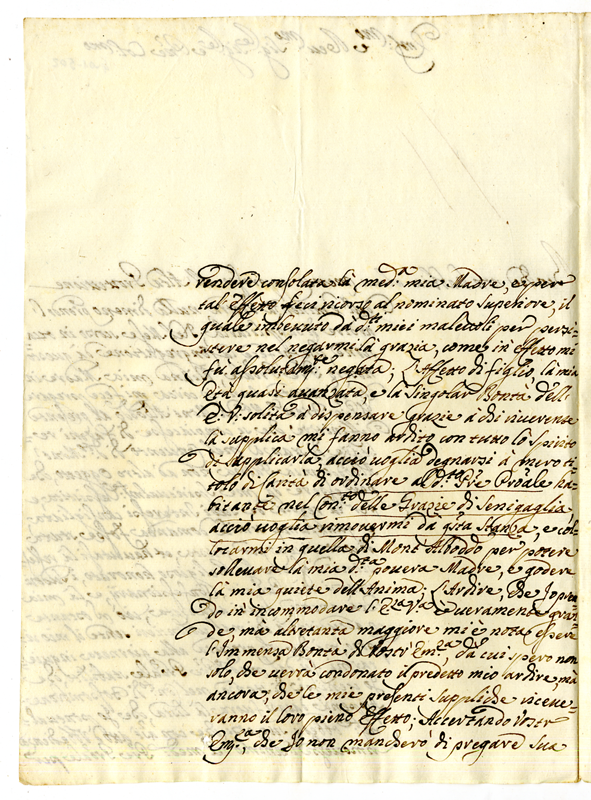 rendere consolata la med.a mia Madre, e per
tal Effetto feci ricorso al nominato Superiore, il
quale imbeuuto dà d.ti miei maleuoli per persi=
stere nel negarmi la grazia, come in effetto mi
fù assolutam.te negata; L'Affetto di figlio la mia
età quasi auanzata e la Singolar Bontà dell'
E. V. solita à dispensare Grazie à chi riuerente
la supplica mi fanno ardito con tutto lo Spirito
di supplicarla, acciò uoglia degnarsi à mero ti=
tolo di Carità di ordinare al d.to Pre Prõale ha=
bitante nel Con.to delle Grazie di Senigaglia
acciò uoglia rimouermi da q̃sta Stanza, e col=
locarmi in quella di Mont Alboddo per potere
solleuare la mia d.ta pouera Madre, e godere
la mia quiete dell'Anima; L'Ardire, che Io pren=
do in incommodare l'E.za V.a è ueramente gran=
de, mà altretanta maggiore mi è nota essere
l'Immensa Bontà di Vostr' Em.za, dà cui spero non
solo, che uerrà condonato il predetto mio ardire, mà
ancora, che le mie presenti Suppliche riceue=
ranno il loro pieno Effetto; Accertando Vostr'
Em.za, che Io non mancherò di pregare Sua